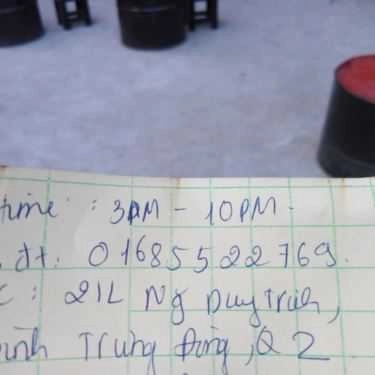 time : 3PM - 10PM.
đt: 01685522769.
C: 21L Ng Duy Trinh,
ình Trưng Đông, Q2